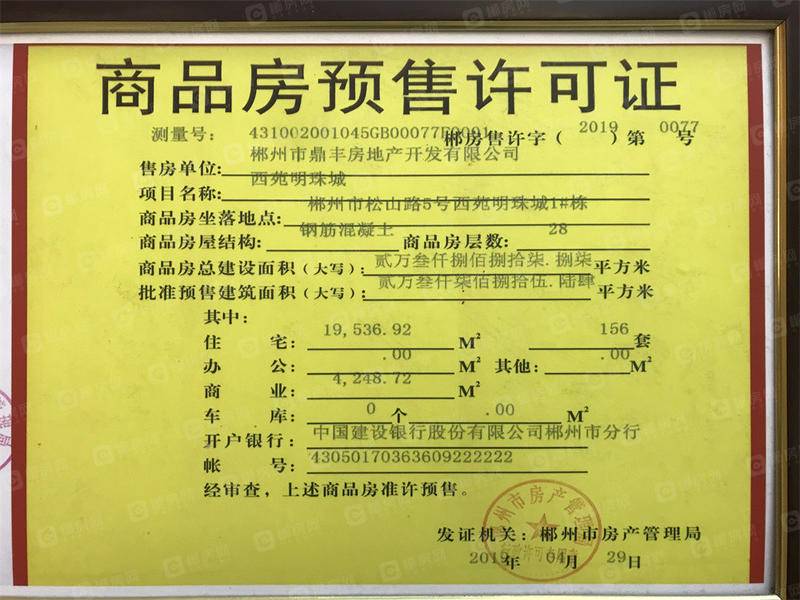 商品房预售许可证
测量号: 431002001045GB00077F0091 郴房售许字(2019)第0077号
售房单位: 郴州市鼎丰房地产开发有限公司
项目名称: 西苑明珠城
商品房坐落地点: 郴州市松山路5号西苑明珠城1#栋
商品房屋结构: 钢筋混凝土 商品房层数: 28
商品房总建设面积(大写): 贰万叁仟捌佰捌拾柒.捌柒 平方米
批准预售建筑面积(大写): 贰万叁仟柒佰捌拾伍.陆肆 平方米
其中:
住 宅: 19,536.92 M² 156 套
办 公: .00 M² 其他: .00 M²
商 业: 4,248.72 M²
车 库: 0 个 .00 M²
开户银行: 中国建设银行股份有限公司郴州市分行
帐 号: 43050170363609222222
经审查,上述商品房准许预售。
发证机关: 郴州市房产管理局
2019年 04月 29日
郴州市房产管理局